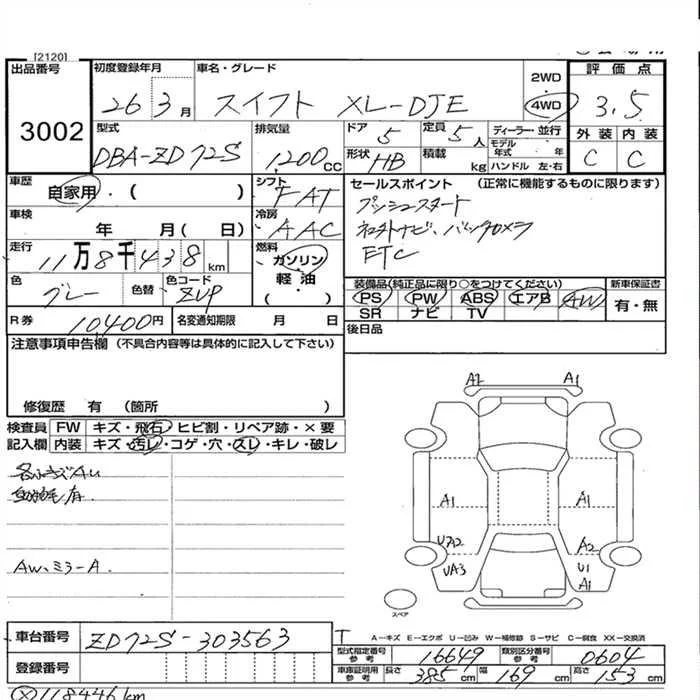 [2120]
出品番号 3002
初度登録年月 26 3月
車名・グレード スイフト XL-DJE
2WD
4WD
評価点 3.5
型式 DBA-ZD72S
排気量 1,200 CC
ドア 5
定員 5人
ディーラー・並行
モデル年式 年
形状 HB
積載 kg
ハンドル 左・右
外装 C
内装 C
車歴 自家用・( )
シフト FAT
セールスポイント (正常に機能するものに限ります)
プッシュスタート
ナビ、バックカメラ
ETC
車検 年 月( 日)
冷房 AAC
走行 11万8千438km
燃料 ガソリン
軽油
( )
色 グレー
色替
色コード ZUP
装備品(純正品に限り○をつけてください)
新車保証書
PS PW ABS エアB AW
有・無
SR ナビ TV
R券 10,400円
名変通知期限 月 日
後日品
注意事項申告欄 (不具合内容等は具体的に記入して下さい)
修復歴 有 (箇所 )
検査員 FW キズ・飛石・ヒビ割・リペア跡・×要
記入欄 内装 キズ・汚レ・コゲ・穴・スレ・キレ・破レ
AW、ミラーA.
A2 A1
A1 A1
UA2 A2
UA3 U1
A1
スペア
A-キズ E-エクボ U-凹み W-補修跡 S-サビ C-腐食 XX-交換済
車台番号 ZD72S-303563
T
型式指定番号 参考 16649
類別区分番号 参考 0604
登録番号
車庫証明用 参考 長さ 385cm 幅 169cm 高さ 153cm
118446km